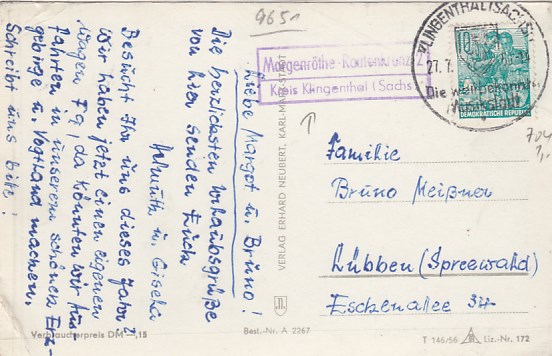 9651
Liebe Margot u. Bruno!
Die herzlichsten Urlaubsgrüße
von hier senden Euch
Helmuth u. Gisela.
Besucht Ihr uns dieses Jahr?
Wir haben jetzt einen eigenen
Wagen F 9, da könnten wir Aus-
fahrten in unserem schönen Erz-
gebirge u. Vogtland machen.
Schreibt uns bitte!
Verbraucherpreis DM —,15
Best.-Nr. A 2267
VERLAG ERHARD NEUBERT, KARL-MARX-STADT
Morgenröthe-Rautenkranz 2
Kreis Klingenthal (Sachs
KLINGENTHAL (SACHS
27.7.
Die weltbekannte
Musikstadt
10
DEUTSCHE DEMOKRATISCHE REPUBLIK
Familie
Bruno Meißner
Lübben (Spreewald)
Eschenallee 34
704
1,-
T 146/56
Liz.-Nr. 172